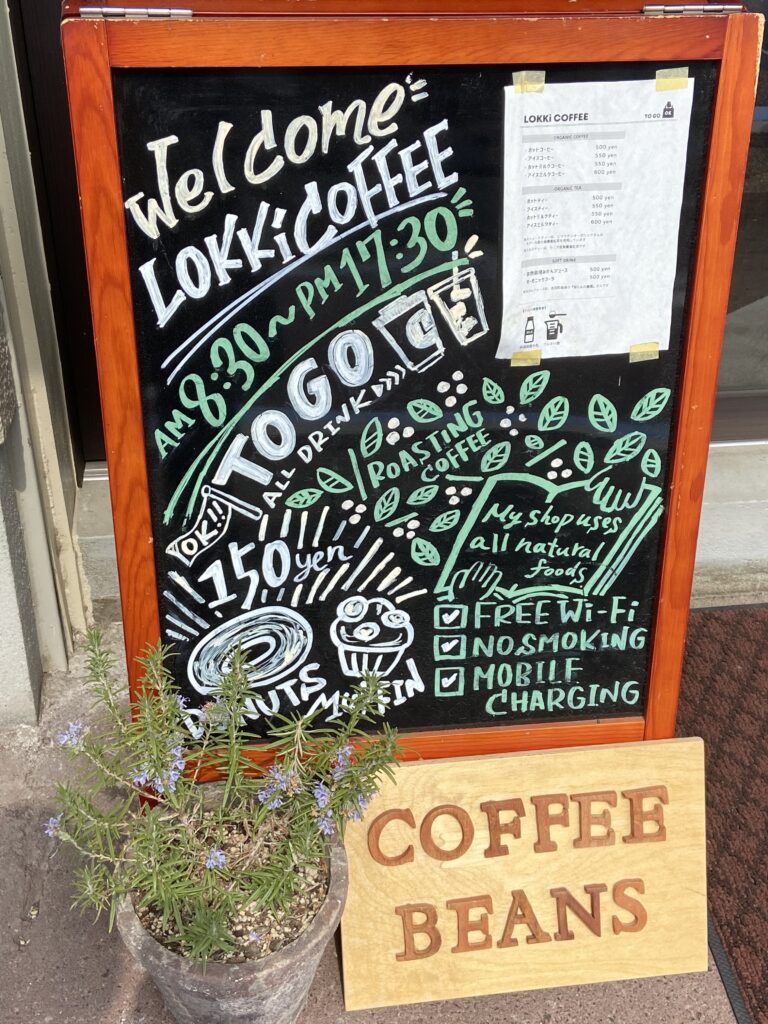 Welcome
LOKKi COFFEE
AM 8:30~PM 17:30
TO GO
ALL DRINK >>>>
OK!!
ROASTING
COFFEE
150 yen
My shop uses
all natural
foods
DONUTS
MUFFIN
☑ FREE Wi-Fi
☑ NO SMOKING
☑ MOBILE
CHARGING
LOKKi COFFEE
TO GO OK
ORGANIC COFFEE
・ホットコーヒー 500 yen
・アイスコーヒー 550 yen
・ホットミルクコーヒー 550 yen
・アイスミルクコーヒー 600 yen
ORGANIC TEA
ホットティー 500 yen
アイスティー 550 yen
ホットミルクティー 550 yen
アイスミルクティー 600 yen
SOFT DRINK
500 yen
500 yen
COFFEE
BEANS